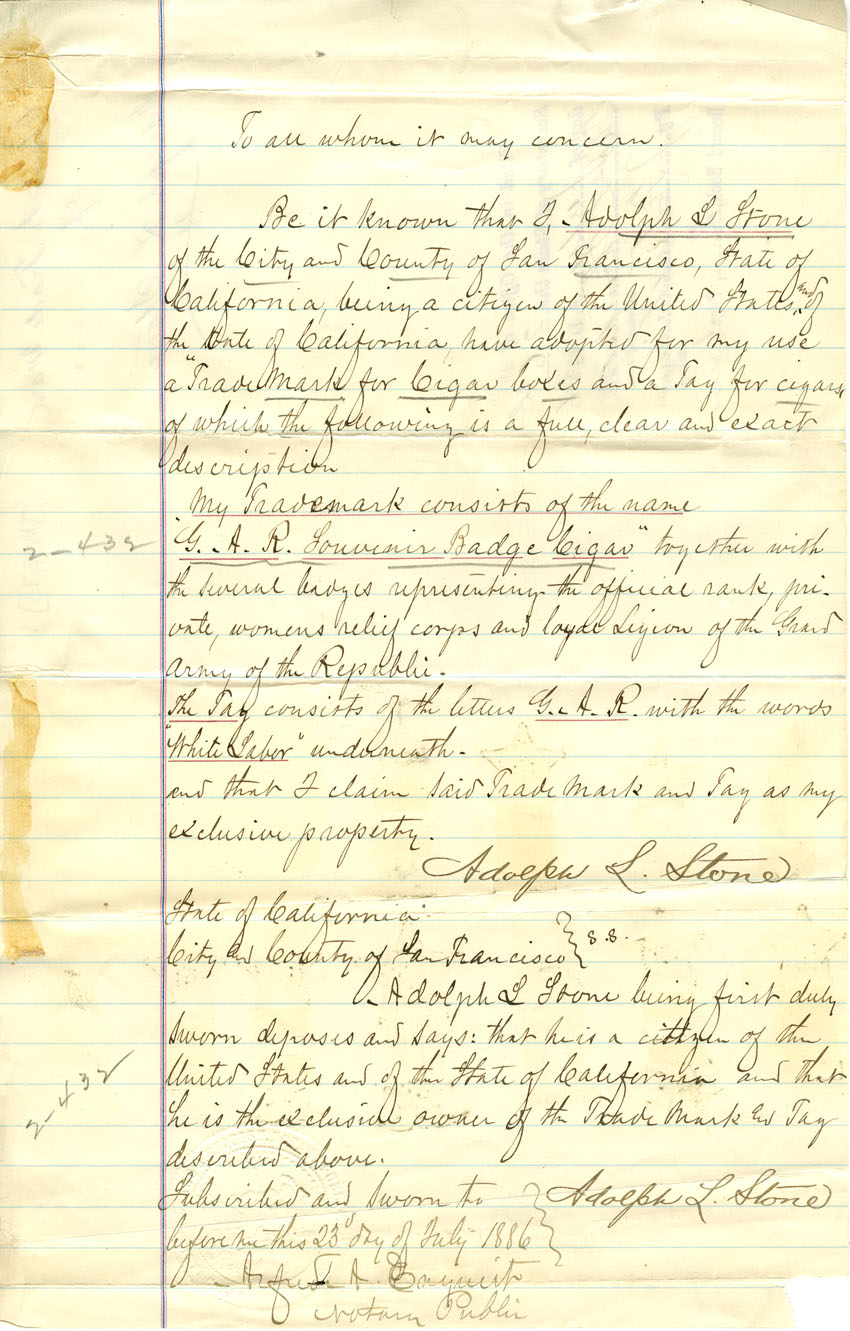 To all whom it may concern.
Be it known that I, Adolph L Stone
of the City and County of San Francisco, State of
California, being a citizen of the United States, and of
the State of California, have adopted for my use
a "Trade Mark for Cigar boxes and a Tag for cigars,
of which the following is a full, clear and exact
description
My Trademark consists of the name
"G. A. R. Souvenir Badge Cigar" together with
2-432
the several badges representing the official rank, pri-
vate, womens relief corps and loyal Legion of the Grand
Army of the Republic.
The Tag consists of the letters G. A. R. with the words
"White Labor" underneath.
and that I claim said Trade Mark and Tag as my
exclusive property.
Adolph L. Stone
State of California
City and County of San Francisco } s.s.
Adolph L Stone being first duly
sworn deposes and says: that he is a citizen of the
United States and of the State of California and that
2-432
he is the exclusive owner of the Trade Mark and Tag
described above.
Subscribed and sworn to } Adolph L. Stone
before me this 23d day of July 1886
A.
Notary Public